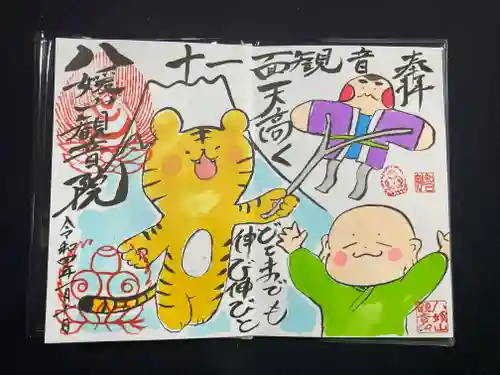 奉拝
十一面観音
天高く
どこまでも
伸び伸びと
八媛観音院
令和四年一月一日